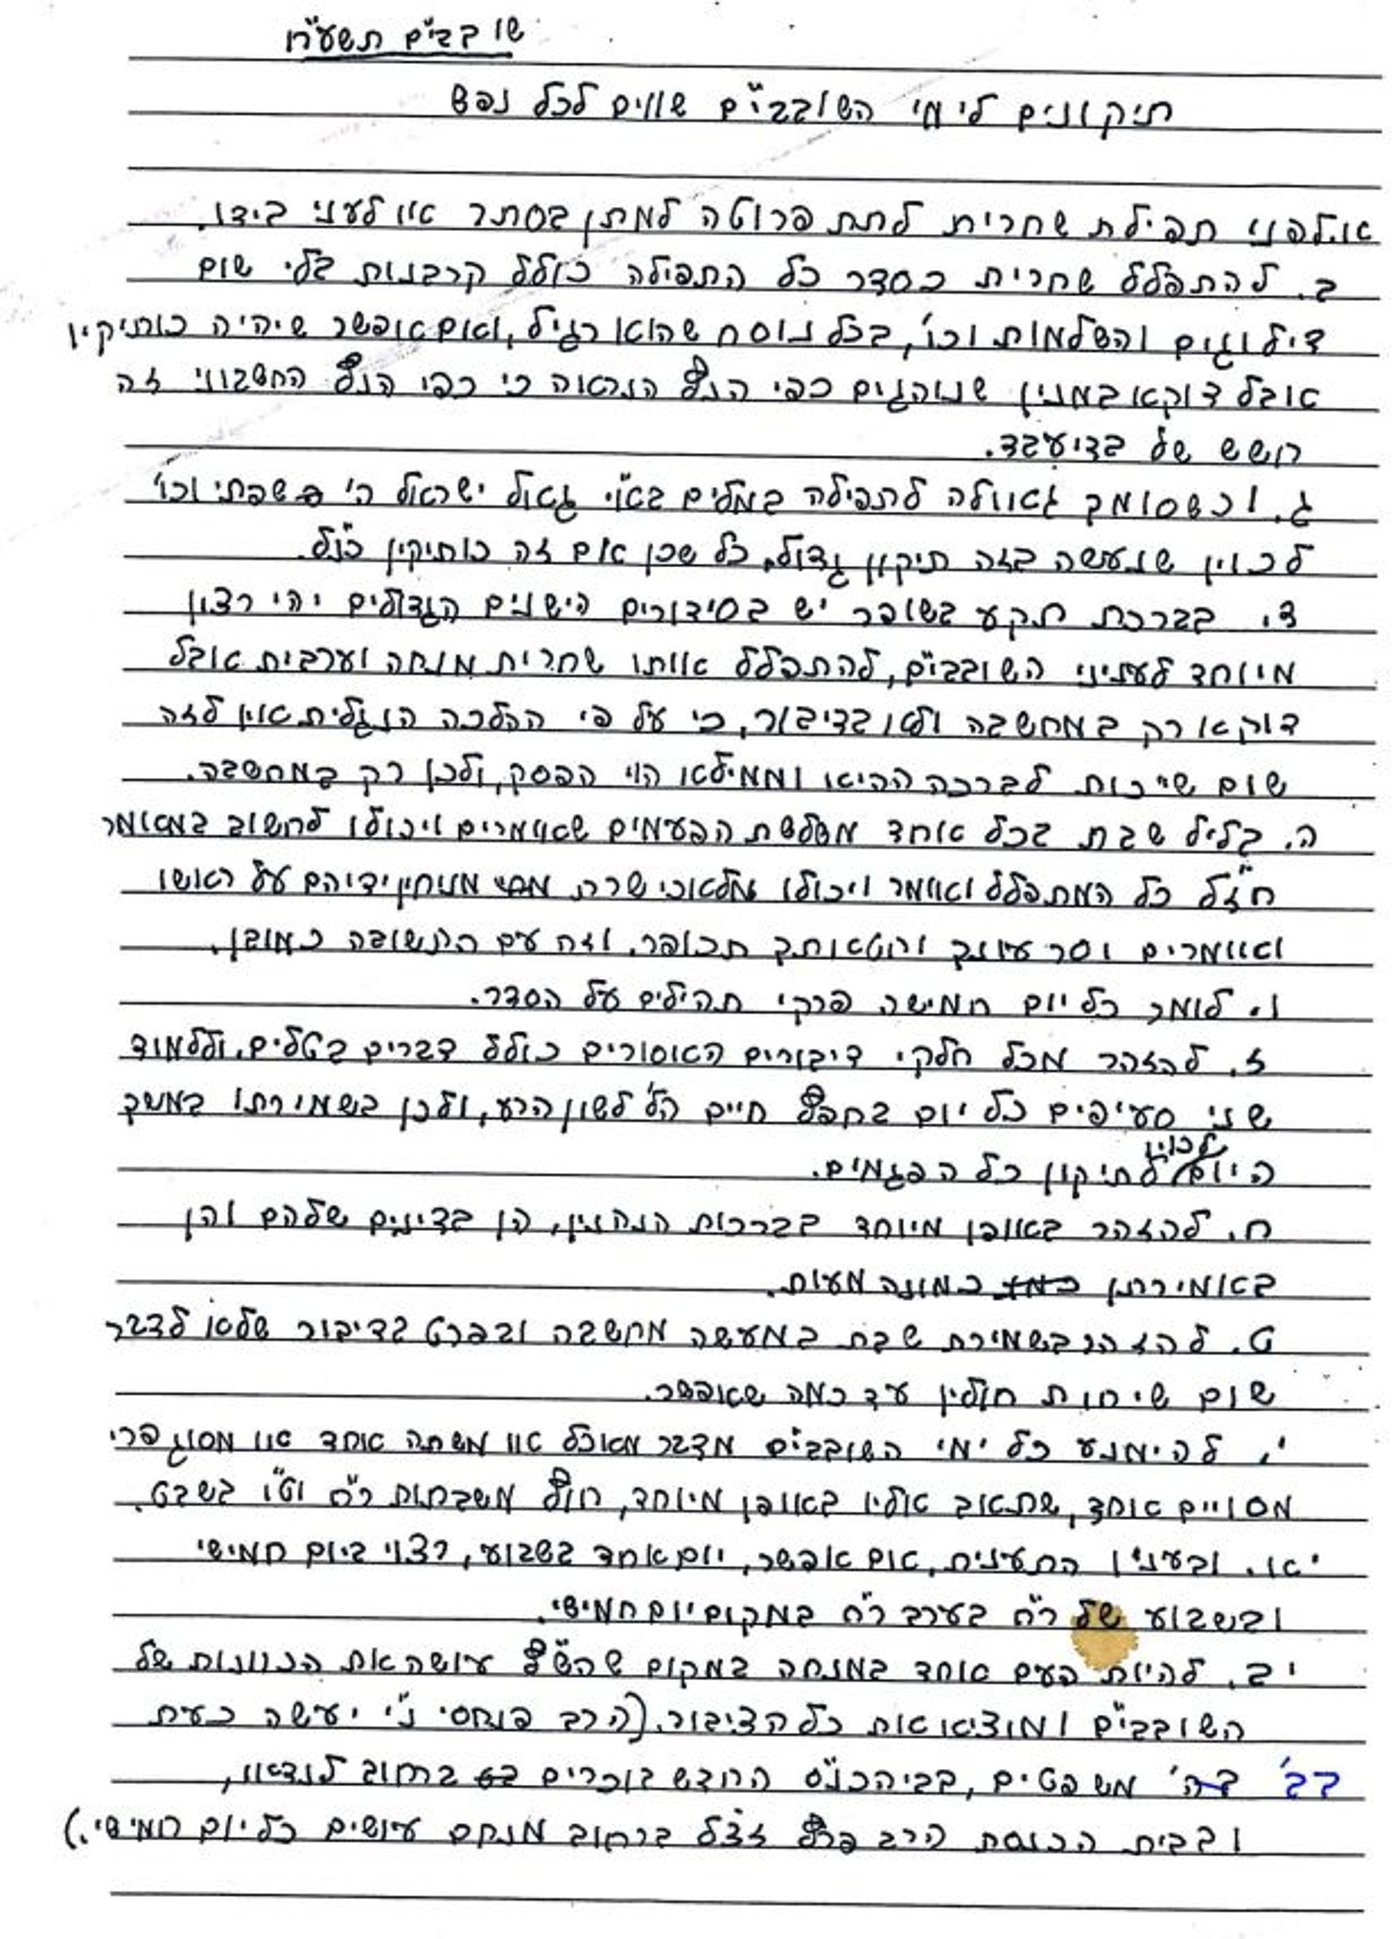 שובבי"ם תשע"ח
תיקונים לימי השובבי"ם שווים לכל נפש
א. לפני תפילת שחרית לתת פרוטה למתן בסתר או לעני בידו.
ב. להתפלל שחרית כסדר כל התפילה כולל קרבנות בלי שום
דילוגים והשלמות וכו', בכל נוסח שהוא רגיל, ואם אפשר שיהיה כותיקין
אבל דוקא במנין שנוהגים כפי הנץ הנראה כי כפי הנץ החשבוני זה
חשש של בדיעבד.
ג. וכשסומך גאולה לתפילה במלים בא"י גאל ישראל ה' שפתי וכו'
לכוין שנעשה בזה תיקון גדול, כל שכן אם זה כותיקין כנ"ל.
ד. בברכת תקע בשופר יש בסידורים הישנים הגדולים יהי רצון
מיוחד לעניני השובבי"ם, להתפלל אותו שחרית מנחה וערבית אבל
דוקא רק במחשבה ולא בדיבור, כי על פי ההלכה הנגלית אין לזה
שום שייכות לברכה ההיא וממילא הוי הפסק, ולכן רק במחשבה.
ה. בליל שבת בכל אחד משלשת הפעמים שאומרים ויכולו לחשוב במאמר
חז"ל כל המתפלל ואומר ויכולו מלאכי שרת מניחין ידיהם על ראשו
ואומרים וסר עונך וחטאתך תכופר. וזה עם התשובה כמובן.
ו. לומר כל יום חמישה פרקי תהילים על הסדר.
ז. להזהר מכל חלקי דיבורים האסורים כולל דברים בטלים. וללמוד
שני סעיפים כל יום בחפץ חיים הל' לשון הרע, ולכן בשמירתו במשך
היום לכוין לתיקון כל הפגמים.
ח. להזהר באופן מיוחד בברכות הנהנין, הן בדינים שלהם והן
באמירתן כמונה מעות.
ט. להזהר בשמירת שבת במעשה מחשבה ובפרט בדיבור שלא לדבר
שום שיחות חולין עד כמה שאפשר.
י. להימנע כל ימי השובבי"ם מדבר מאכל או משתה אחד או מסוג פרי
מסויים אחד, שתאב אליו באופן מיוחד, חוץ משבתות ר"ח וט"ו בשבט.
יא. ובענין התענית, אם אפשר, יום אחד בשבוע, רצוי ביום חמישי
ובשבוע של ר"ח בערב ר"ח במקום יום חמישי.
יב. להיות פעם אחד במנחה במקום שהש"ץ עושה את הכוונות של
השובבי"ם ומוציא את כל הציבור. (הרב פנחסי נ"י יעשה כעת
בב' משפטים, בביהכנ"ס החדש בוכרים ברחוב לנדאו,
ובבית הכנסת הרב פרץ זצ"ל ברחוב מנחם עושים כל יום חמישי.)